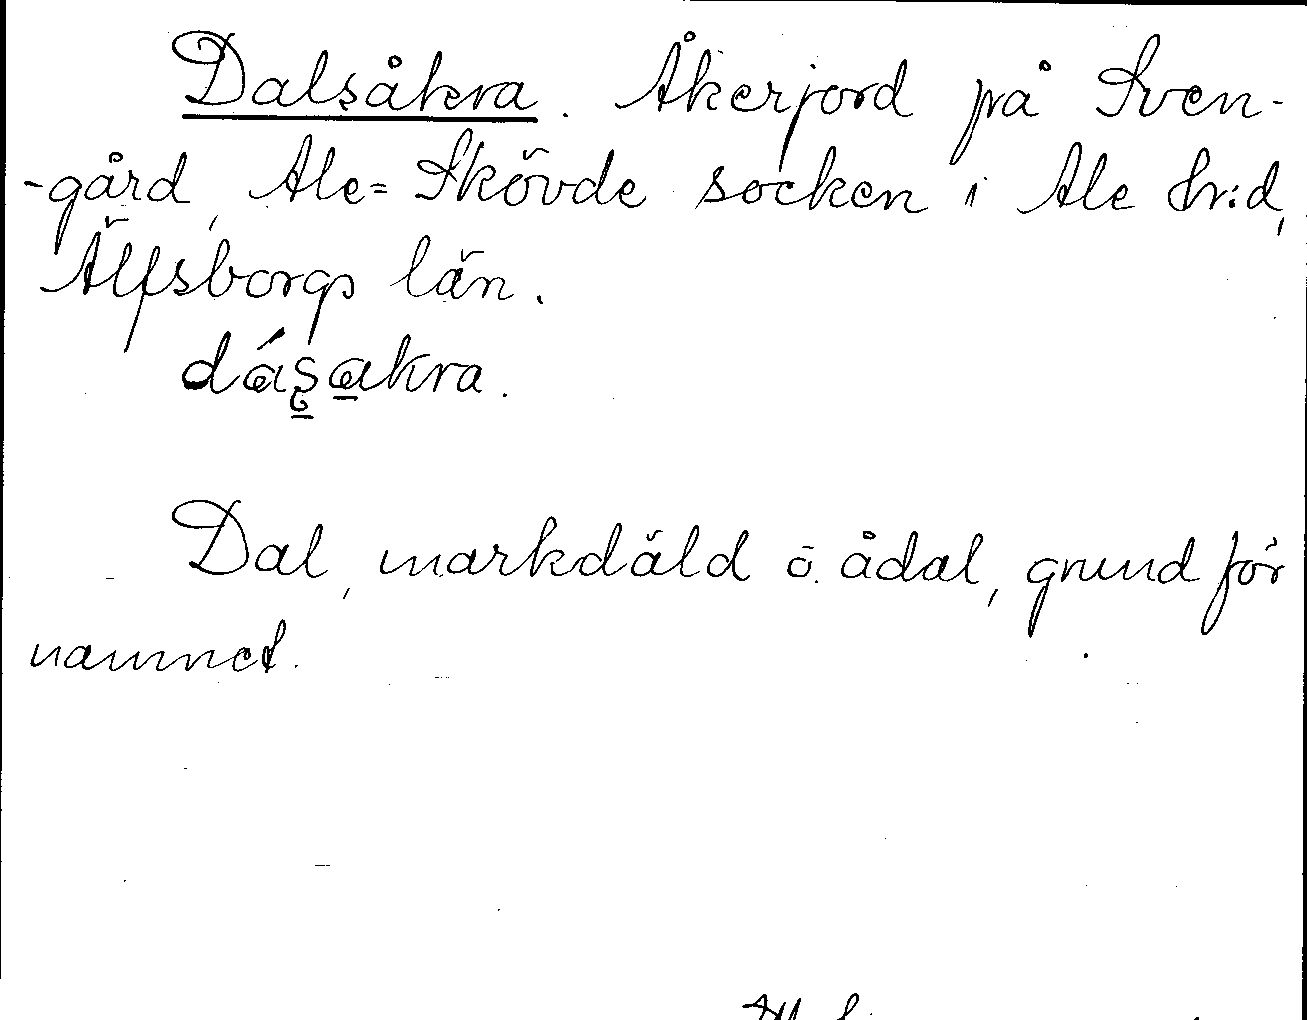 Dalsåkra. Åkerjord på Sven-
-gård, Ale=Skövde socken i Ale hr:d,
Älfsborgs län.
dásakra.
Dal, markdäld o. ådal, grund för
namnet.